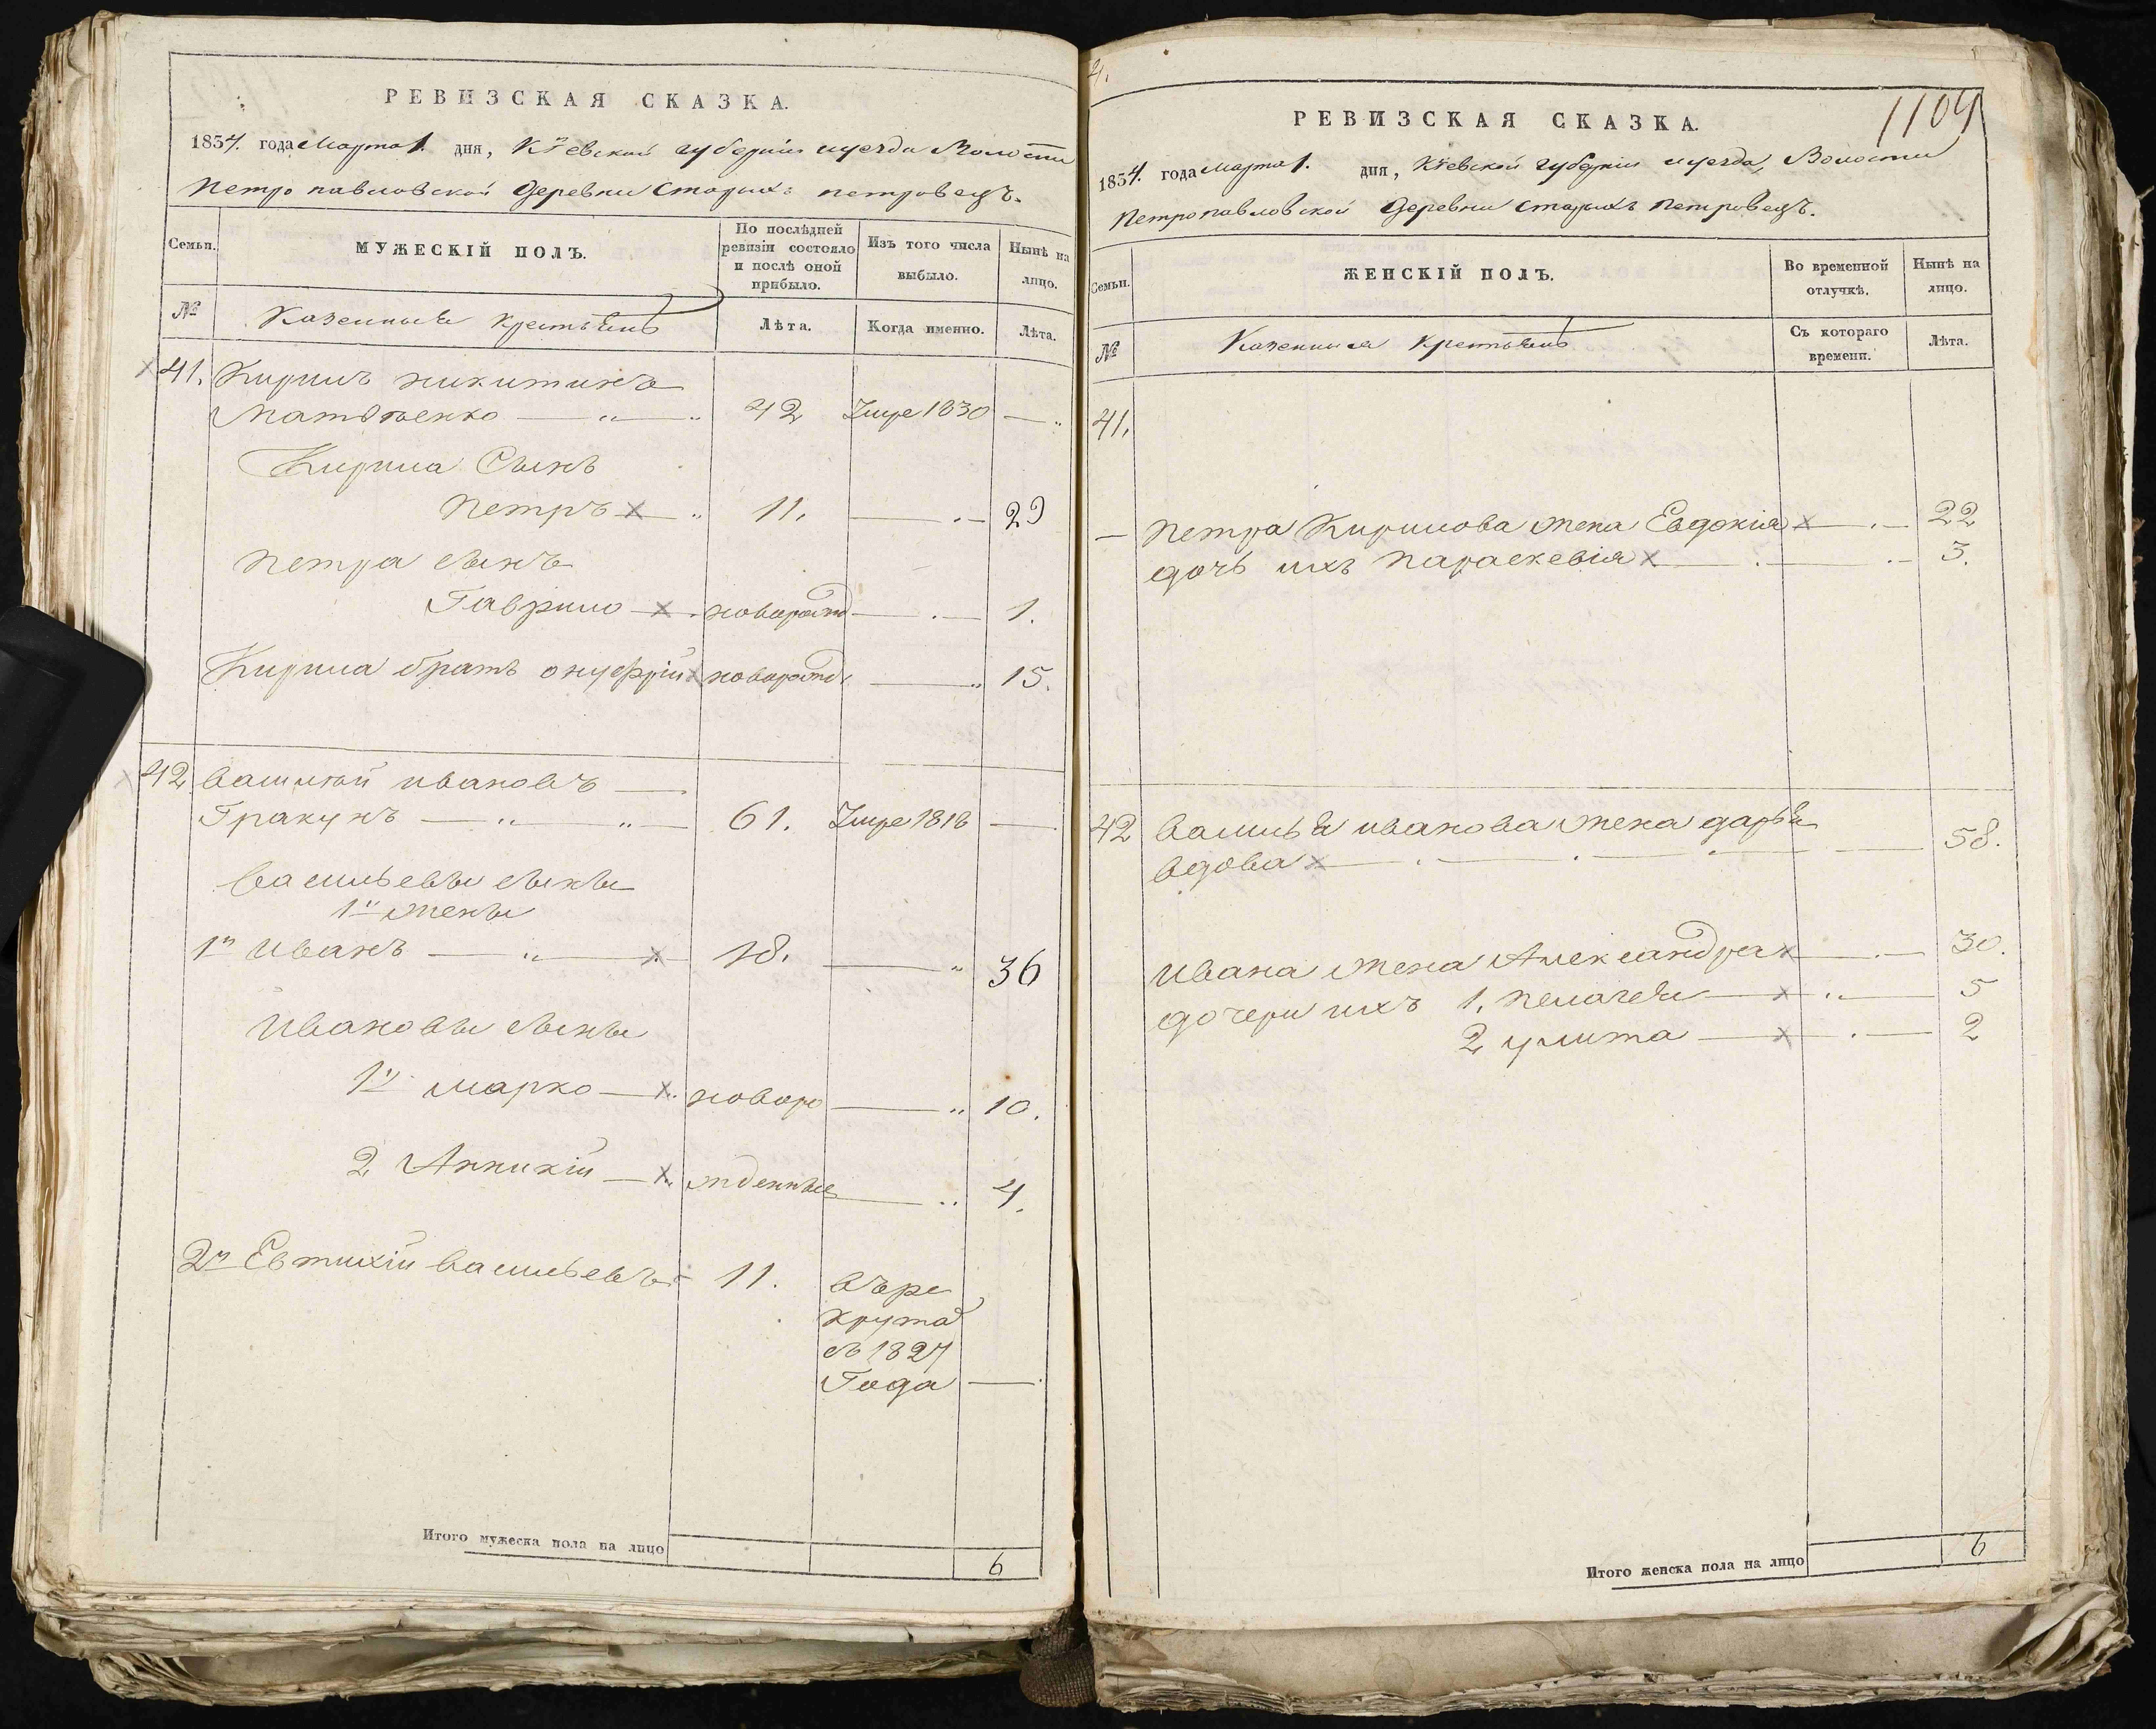 РЕВИЗСКАЯ СКАЗКА.
1834. года Марта 1. дня, Кіевской губерніи и уезда Волости
Петропавловской деревни Старыхъ петровецъ.
Семьи.
МУЖЕСКІЙ ПОЛЪ.
По послѣдней ревизіи состояло и послѣ оной прибыло.
Изъ того числа выбыло.
Нынѣ на лицо.
№
Казенныя крестьянъ
Лѣта.
Когда именно.
Лѣта.
41. Кирилъ никитинъ
42 Умре 1830
Кирила Сынъ
Петръ 11. 29
Петра сынъ
Гаврило новорожд 1.
Кирила братъ онуфрій новорожд. 15.
42 василій ивановъ
Гракунъ 61. Умре 1818
васильевы сыны
1й жены
1й Иванъ 18. 36
Ивановы сыны
1й марко новоро 10.
2 Анникій жденные 4.
2й Евтихій васильевъ 11. въре
круты
съ 1827
Года
Итого мужеска пола на лицо 6
1109
РЕВИЗСКАЯ СКАЗКА.
1834. года Марта 1. дня, Кіевской губерніи и уезда, Волости
Петропавловской деревни старыхъ петровецъ.
Семьи.
ЖЕНСКІЙ ПОЛЪ.
Во временной отлучкѣ.
Нынѣ на лицо.
№
Казенныя крестьянъ
Съ котораго времени.
Лѣта.
41.
Петра Кирилова жена Евдокія 22
дочь ихъ параскевія 3.
42 василья иванова жена дарья
вдова 58.
ивана жена Александра 30.
дочери ихъ 1. пелагея 5
2 улита 2
Итого женска пола на лицо 6